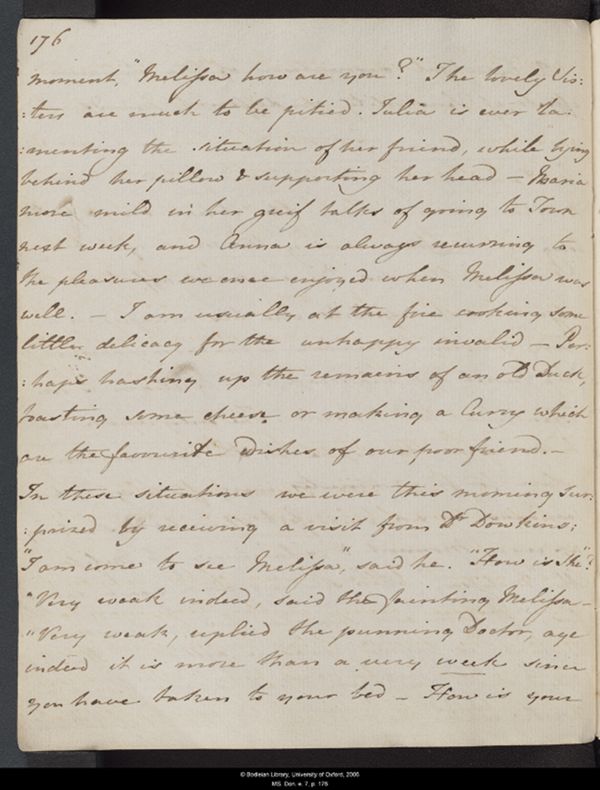 176
moment, "Melissa how are you?" The lovely Sis:
:ters are much to be pitied. Julia is ever la:
:menting the situation of her friend, while lying
behind her pillow & supporting her head — Maria
more mild in her greif talks of going to Town
next week, and Anna is always recurring to
the pleasures we once enjoyed when Melissa was
well. — I am usually at the fire cooking some
little delicacy for the unhappy invalid — Per:
:haps hashing up the remains of an old Duck,
toasting some cheese or making a Curry which
are the favourite Dishes of our poor freind. —
In these situations we were this morning sur:
:prized by receiving a visit from Dr Dowkins;
"I am come to see Melissa," said he. "How is She"?
"Very weak indeed, said the fainting Melissa —
"Very weak, replied the punning Doctor, aye
indeed it is more than a very week since
you have taken to your bed — How is your
© Bodleian Library, University of Oxford, 2006
MS. Don. e. 7, p. 176